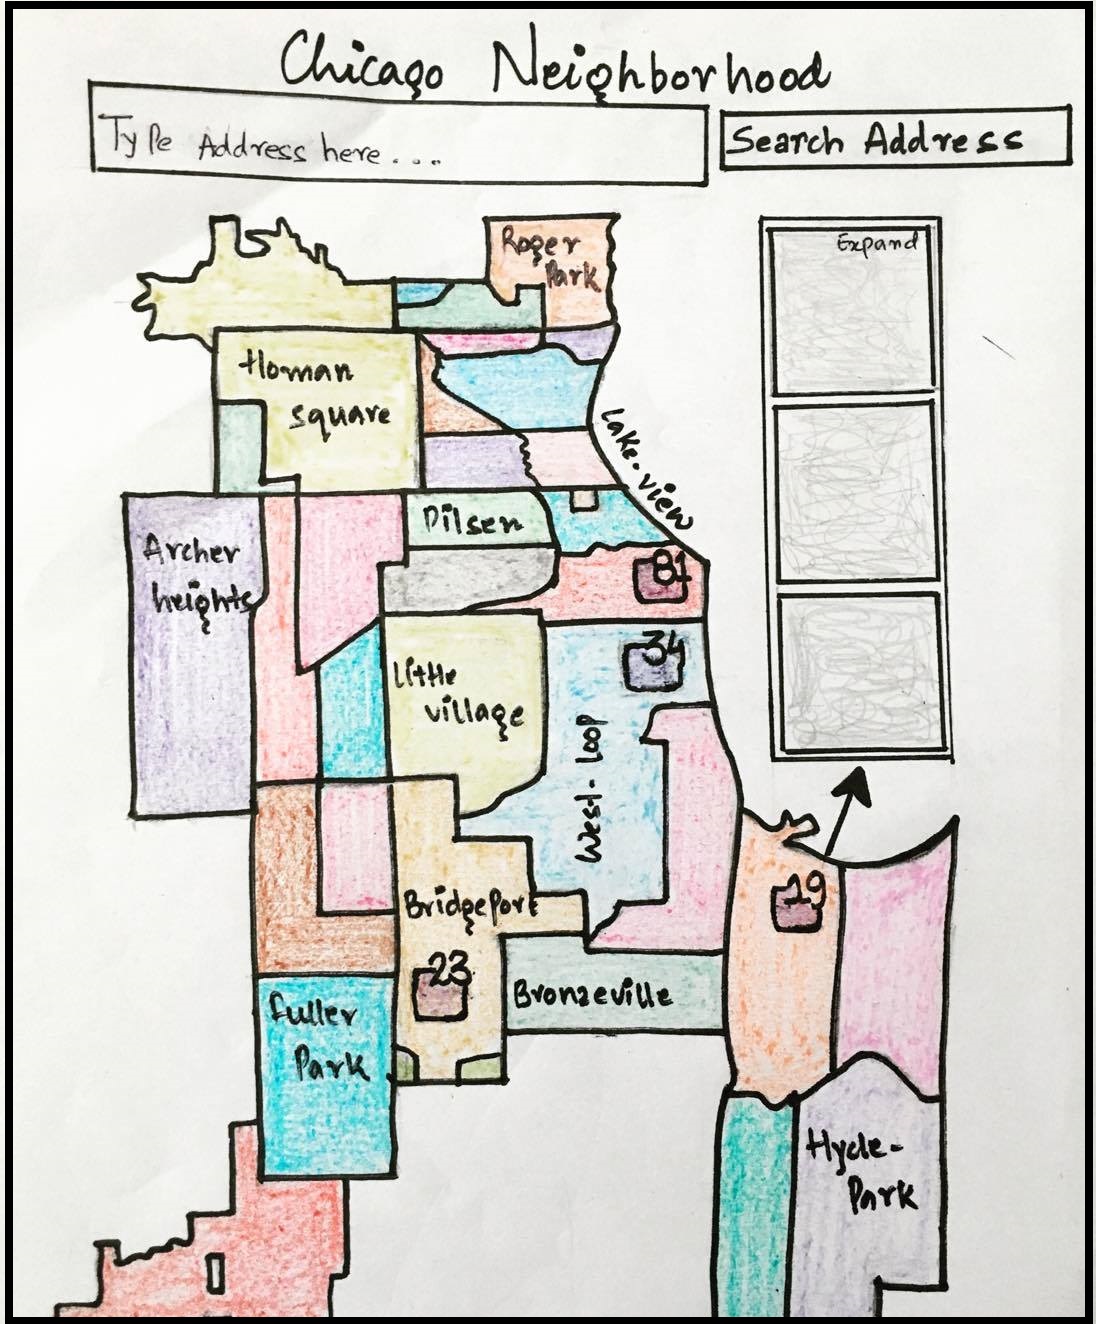 Chicago Neighborhood
Type Address here . . .
Search Address
Roger
Park
Expand
Homan
square
Lake-view
Pilsen
Archer
heights
81
34
Little
village
West-loop
19
Bridgeport
23
Bronzeville
Fuller
Park
Hyde-
Park